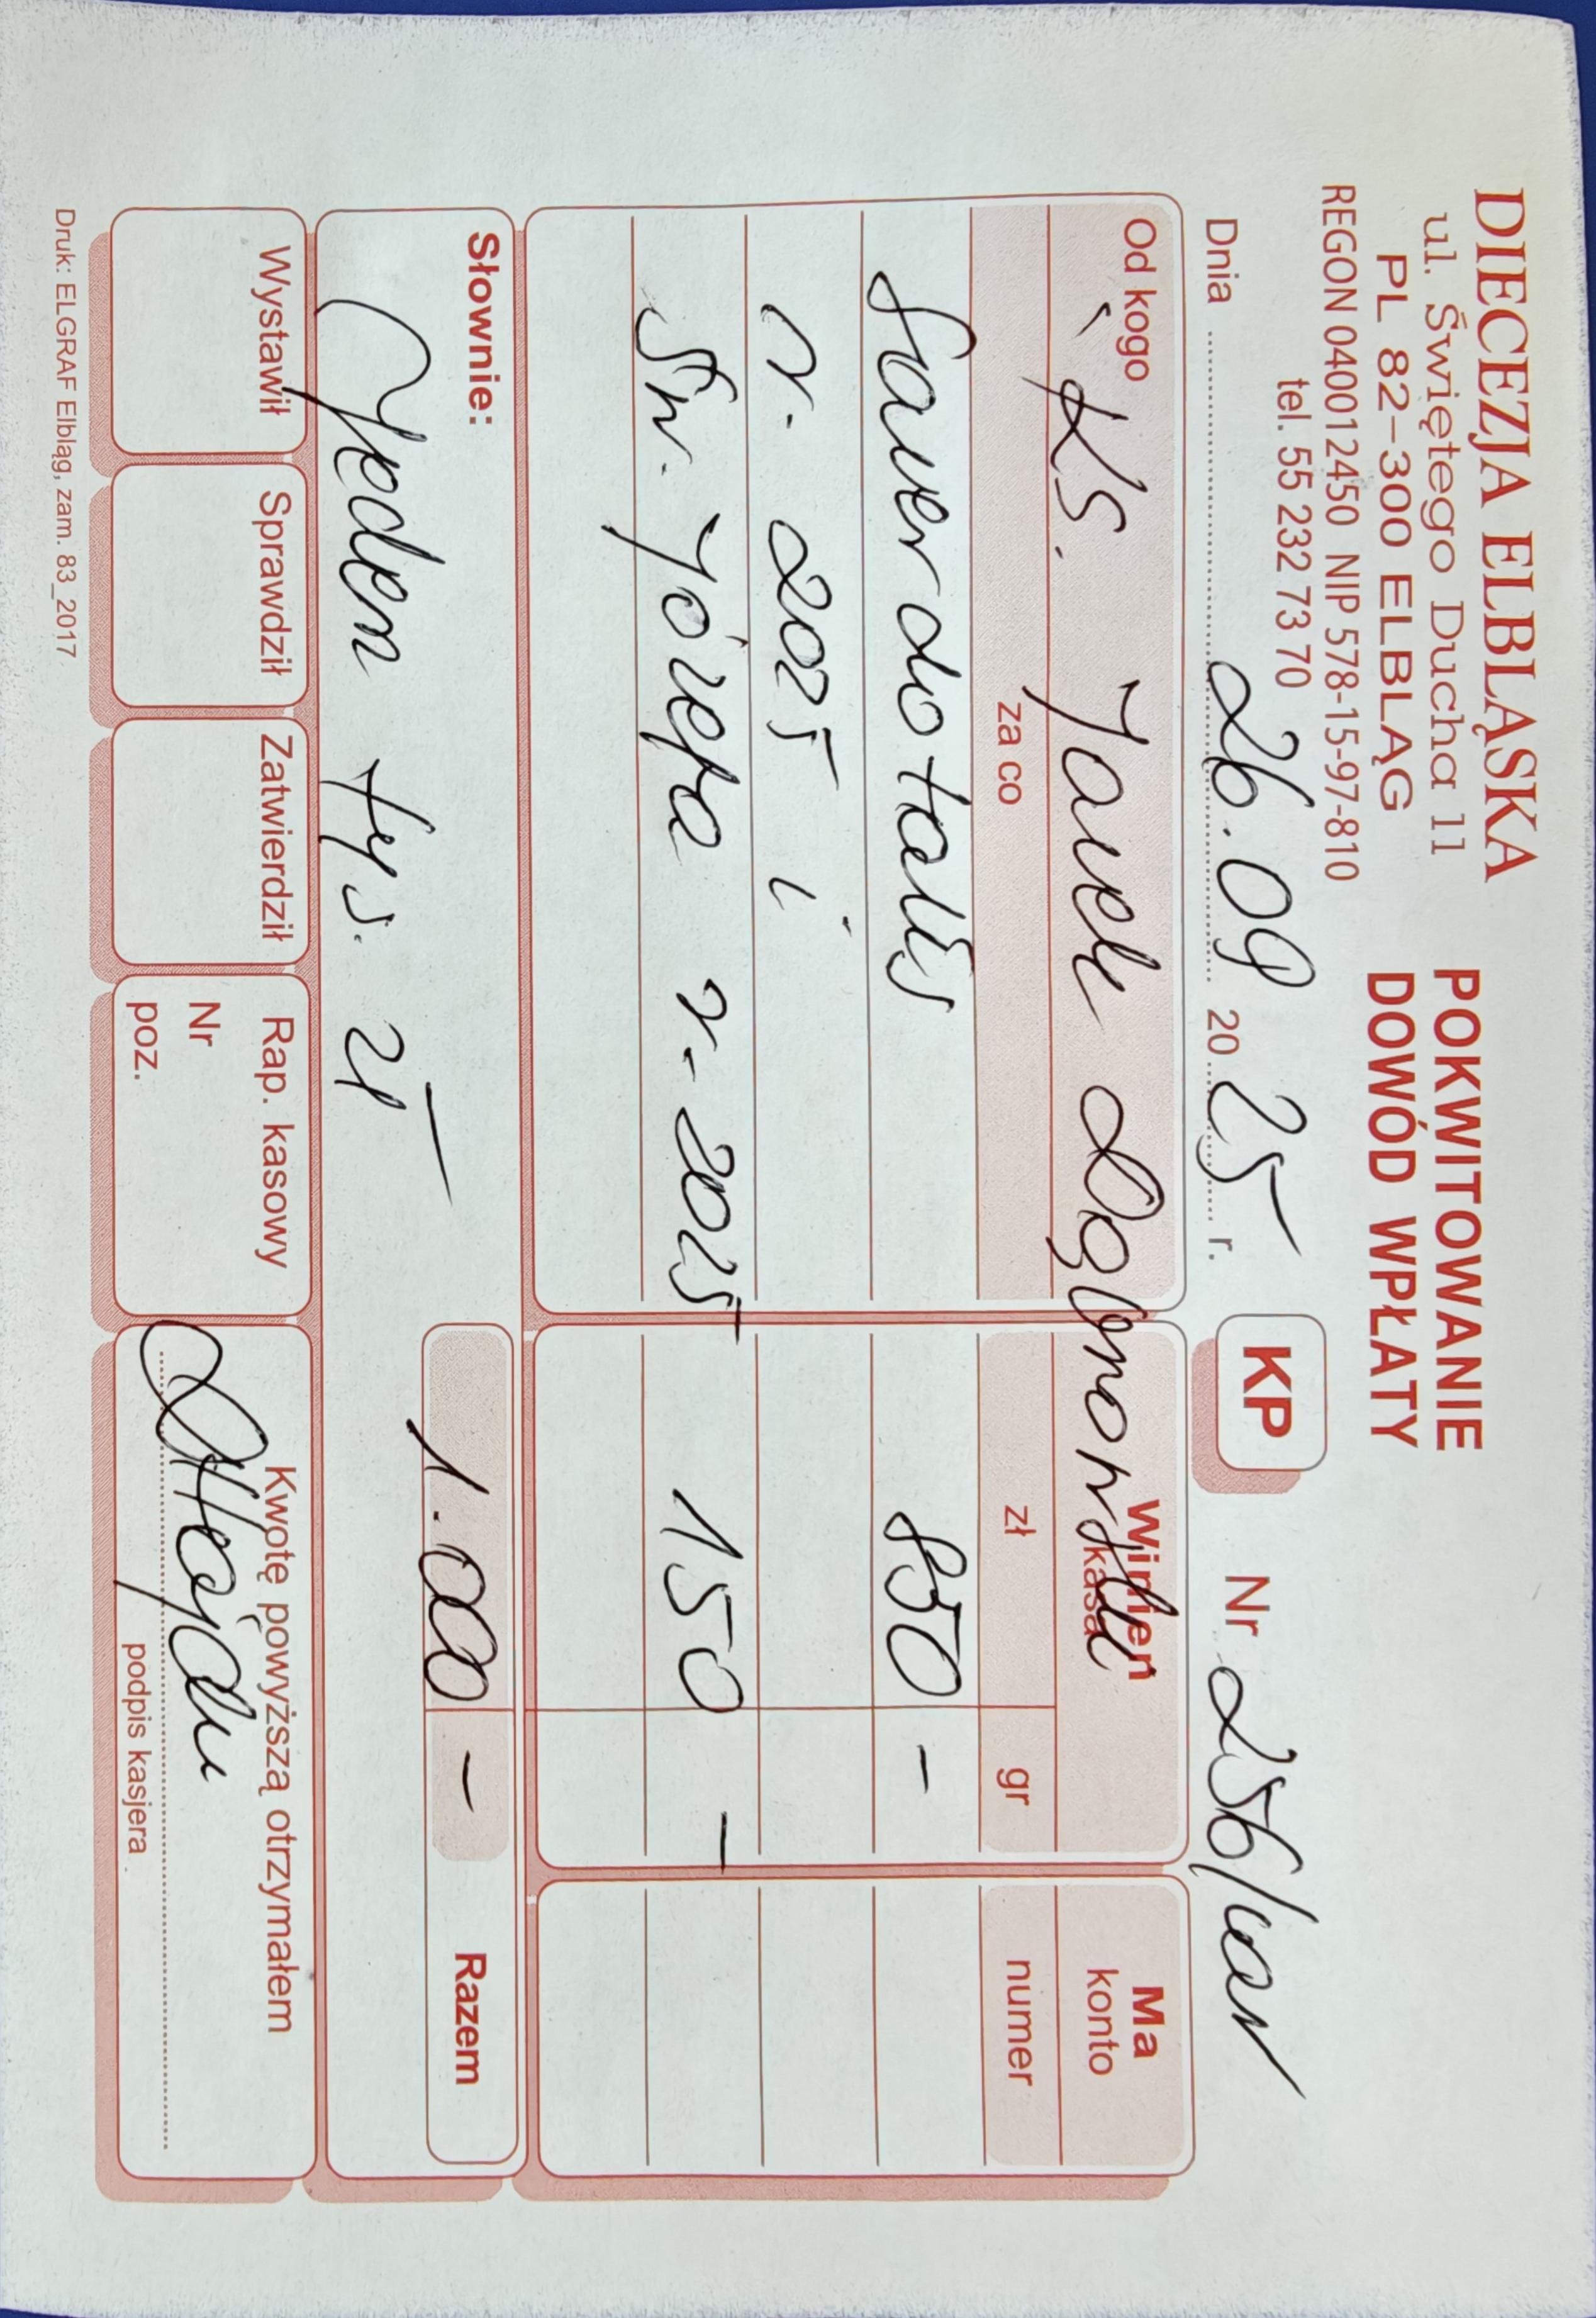 DIECEZJA ELBLĄSKA
ul. Świętego Ducha 11
PL 82-300 ELBLĄG
REGON 040012450 NIP 578-15-97-810
tel. 55 232 73 70
POKWITOWANIE
DOWÓD WPŁATY
Dnia 26.09 2025 r.
KP
Nr 256/kan
Od kogo Ks. Jacek Dąbrowski
Winien
kasa
Ma
konto
za co
zł
gr
numer
Sacerdotalis 850 -
r. 2025 i
Św. Józefa r. 2025 150 -
Słownie:
1.000 -
Razem
Jeden tys. zł
Wystawił
Sprawdził
Zatwierdził
Rap. kasowy
Nr
poz.
Kwotę powyższą otrzymałem
podpis kasjera
Druk: ELGRAF Elbląg, zam. 83_2017